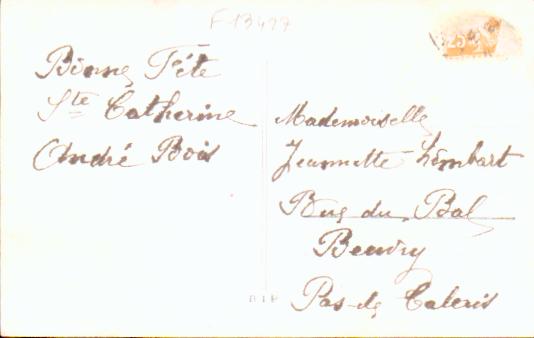 F 13497
Bonne Fête
Ste Catherine
André Bois
Mademoiselle
Jeannette Lembart
Rue du Bal
Beuvry
Pas-de Calais